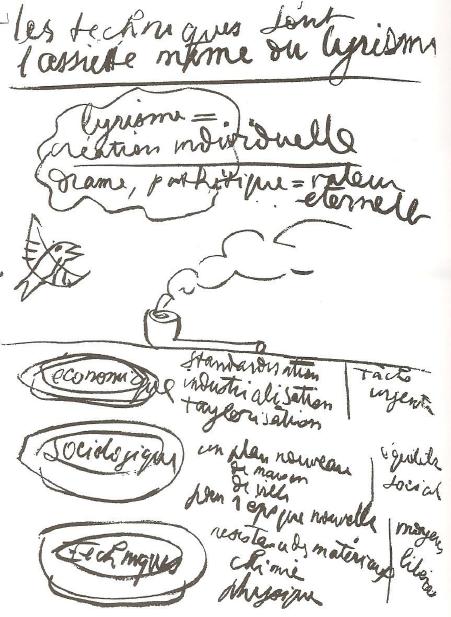 les techniques sont
l'assiette même du lyrisme
lyrisme =
création individuelle
drame, pathétique = valeur
éternelle
économique
standardisation
industrialisation
taylorisation
urgente
sociologique
un plan nouveau
de maison
de ville
pour 1 époque nouvelle
équilibre
social
techniques
résistance des matériaux
chimie
physique
moyens